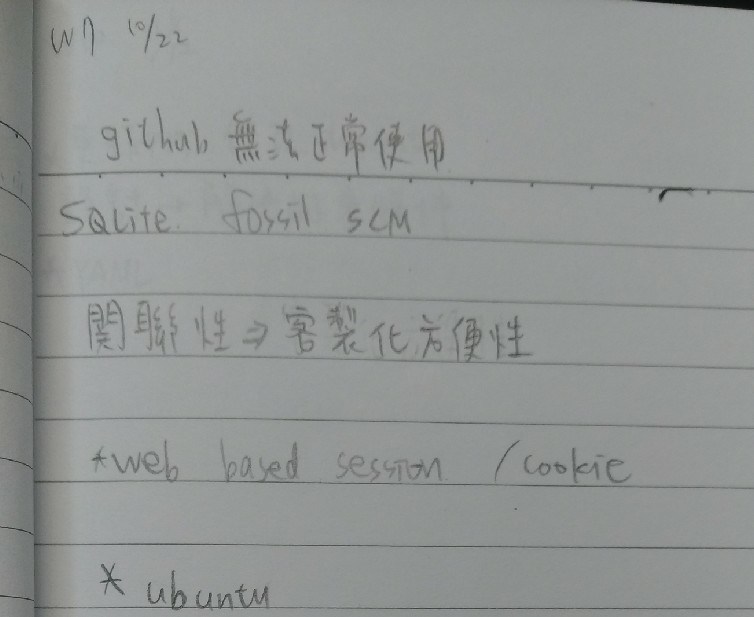 W7 10/22
github 無法正常使用
SQLite. fossil SCM
関聯性⇒客製化方便性
*web based session /cookie
* ubuntu